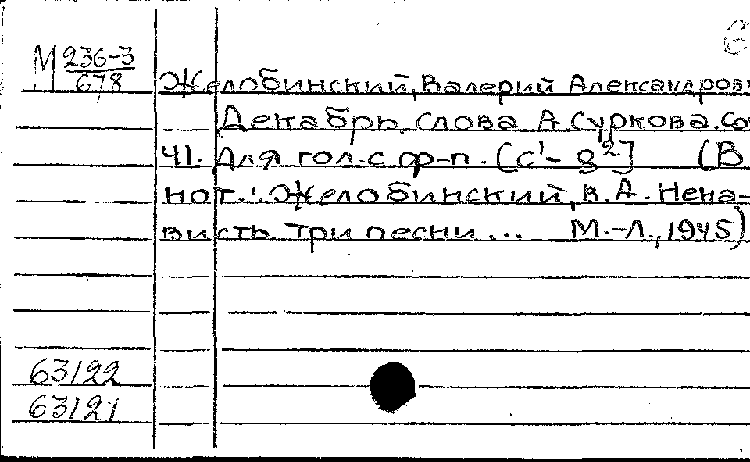 М 236-3
678
Желобинский, Валерий Александров
Декабрь, слова А. Суркова. Со
41. Для гол. с ф-п. (c¹- g²] (В
нот.: Желобинский, В. А. Нена-
висть. Три песни... М.-Л., 1945)
63122
63121